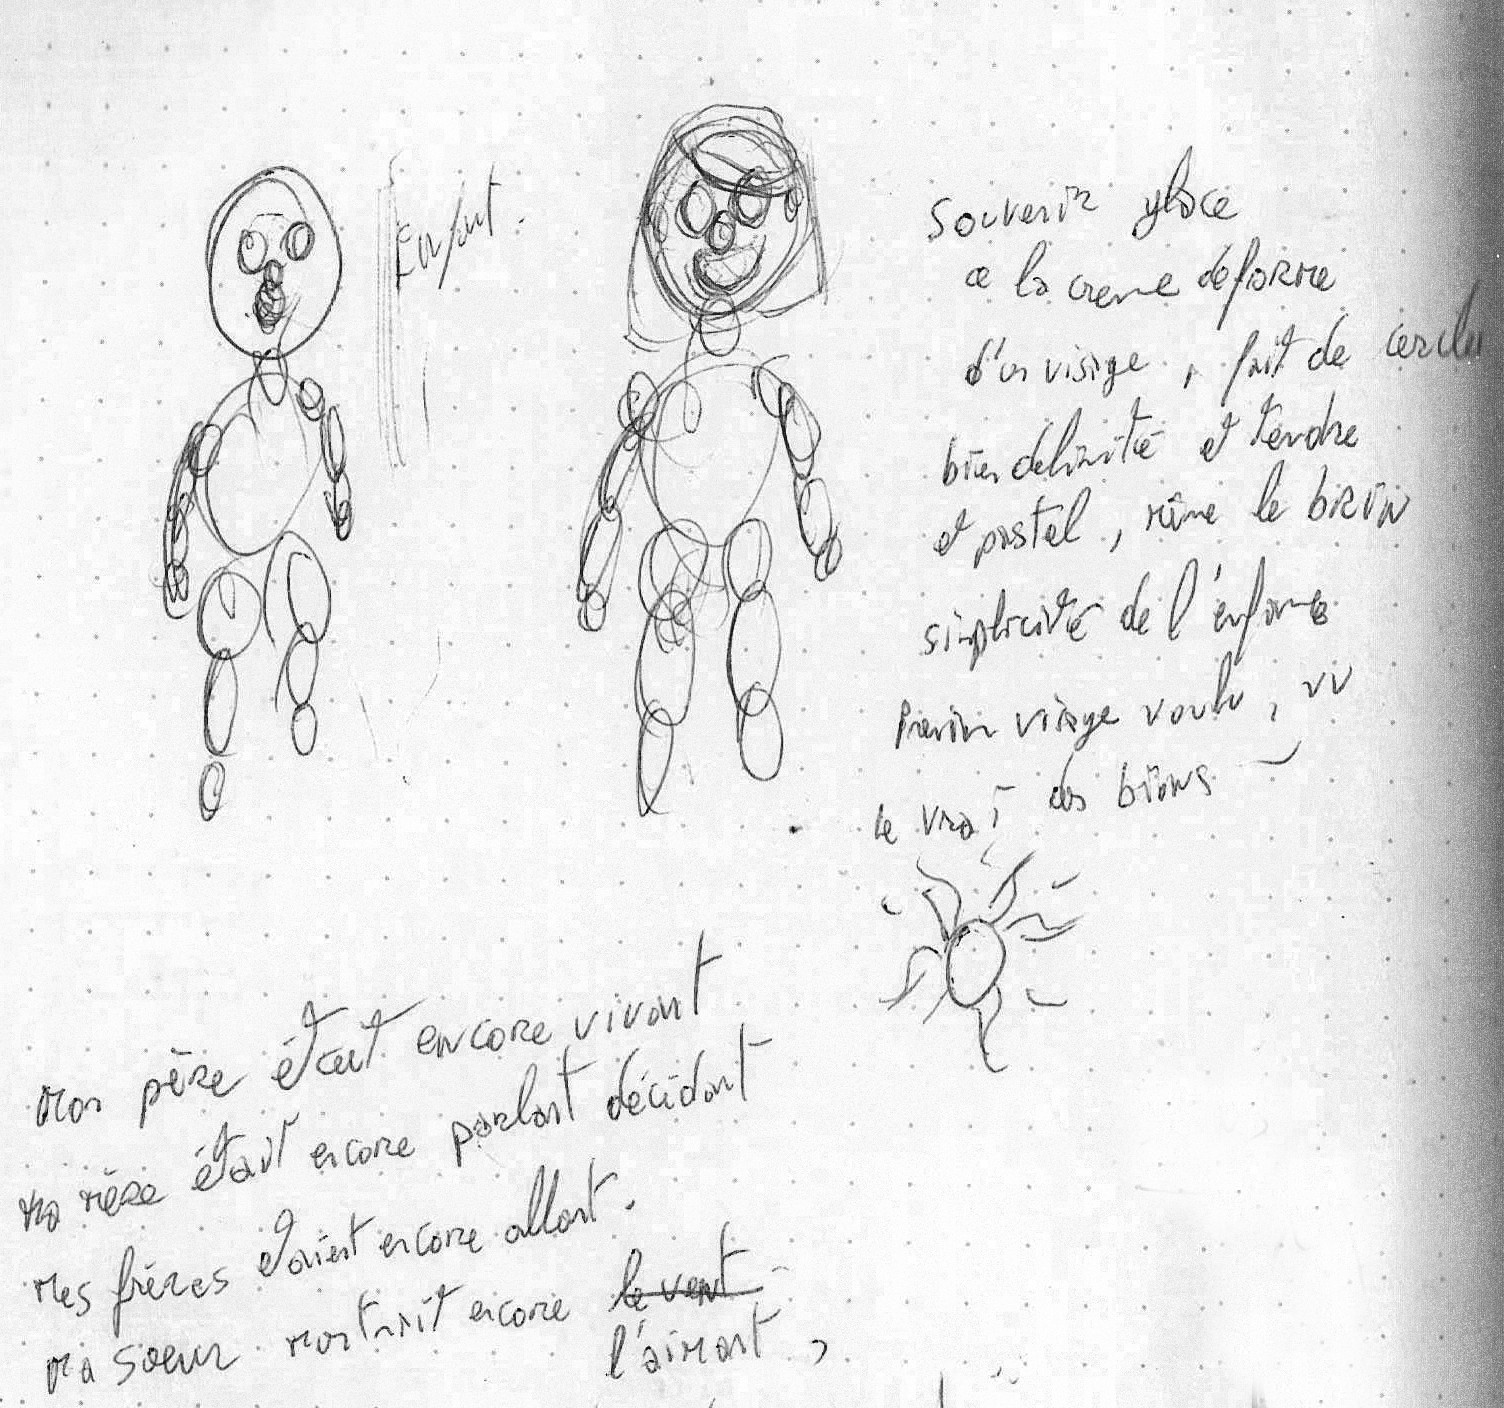 Enfant.
Souvenir glace
a la creme deforme
d'un visage, fait de cercle
bien delimité et tendre
et pastel, même le brun
simplicité de l'enfance
Premier visage voulu, vu
le vrai des biens
Mon père était encore vivant
Ma mère était encore parlant décidant
Mes frères étaient encore allant.
Ma soeur montrait encore le vent
l'aimant,